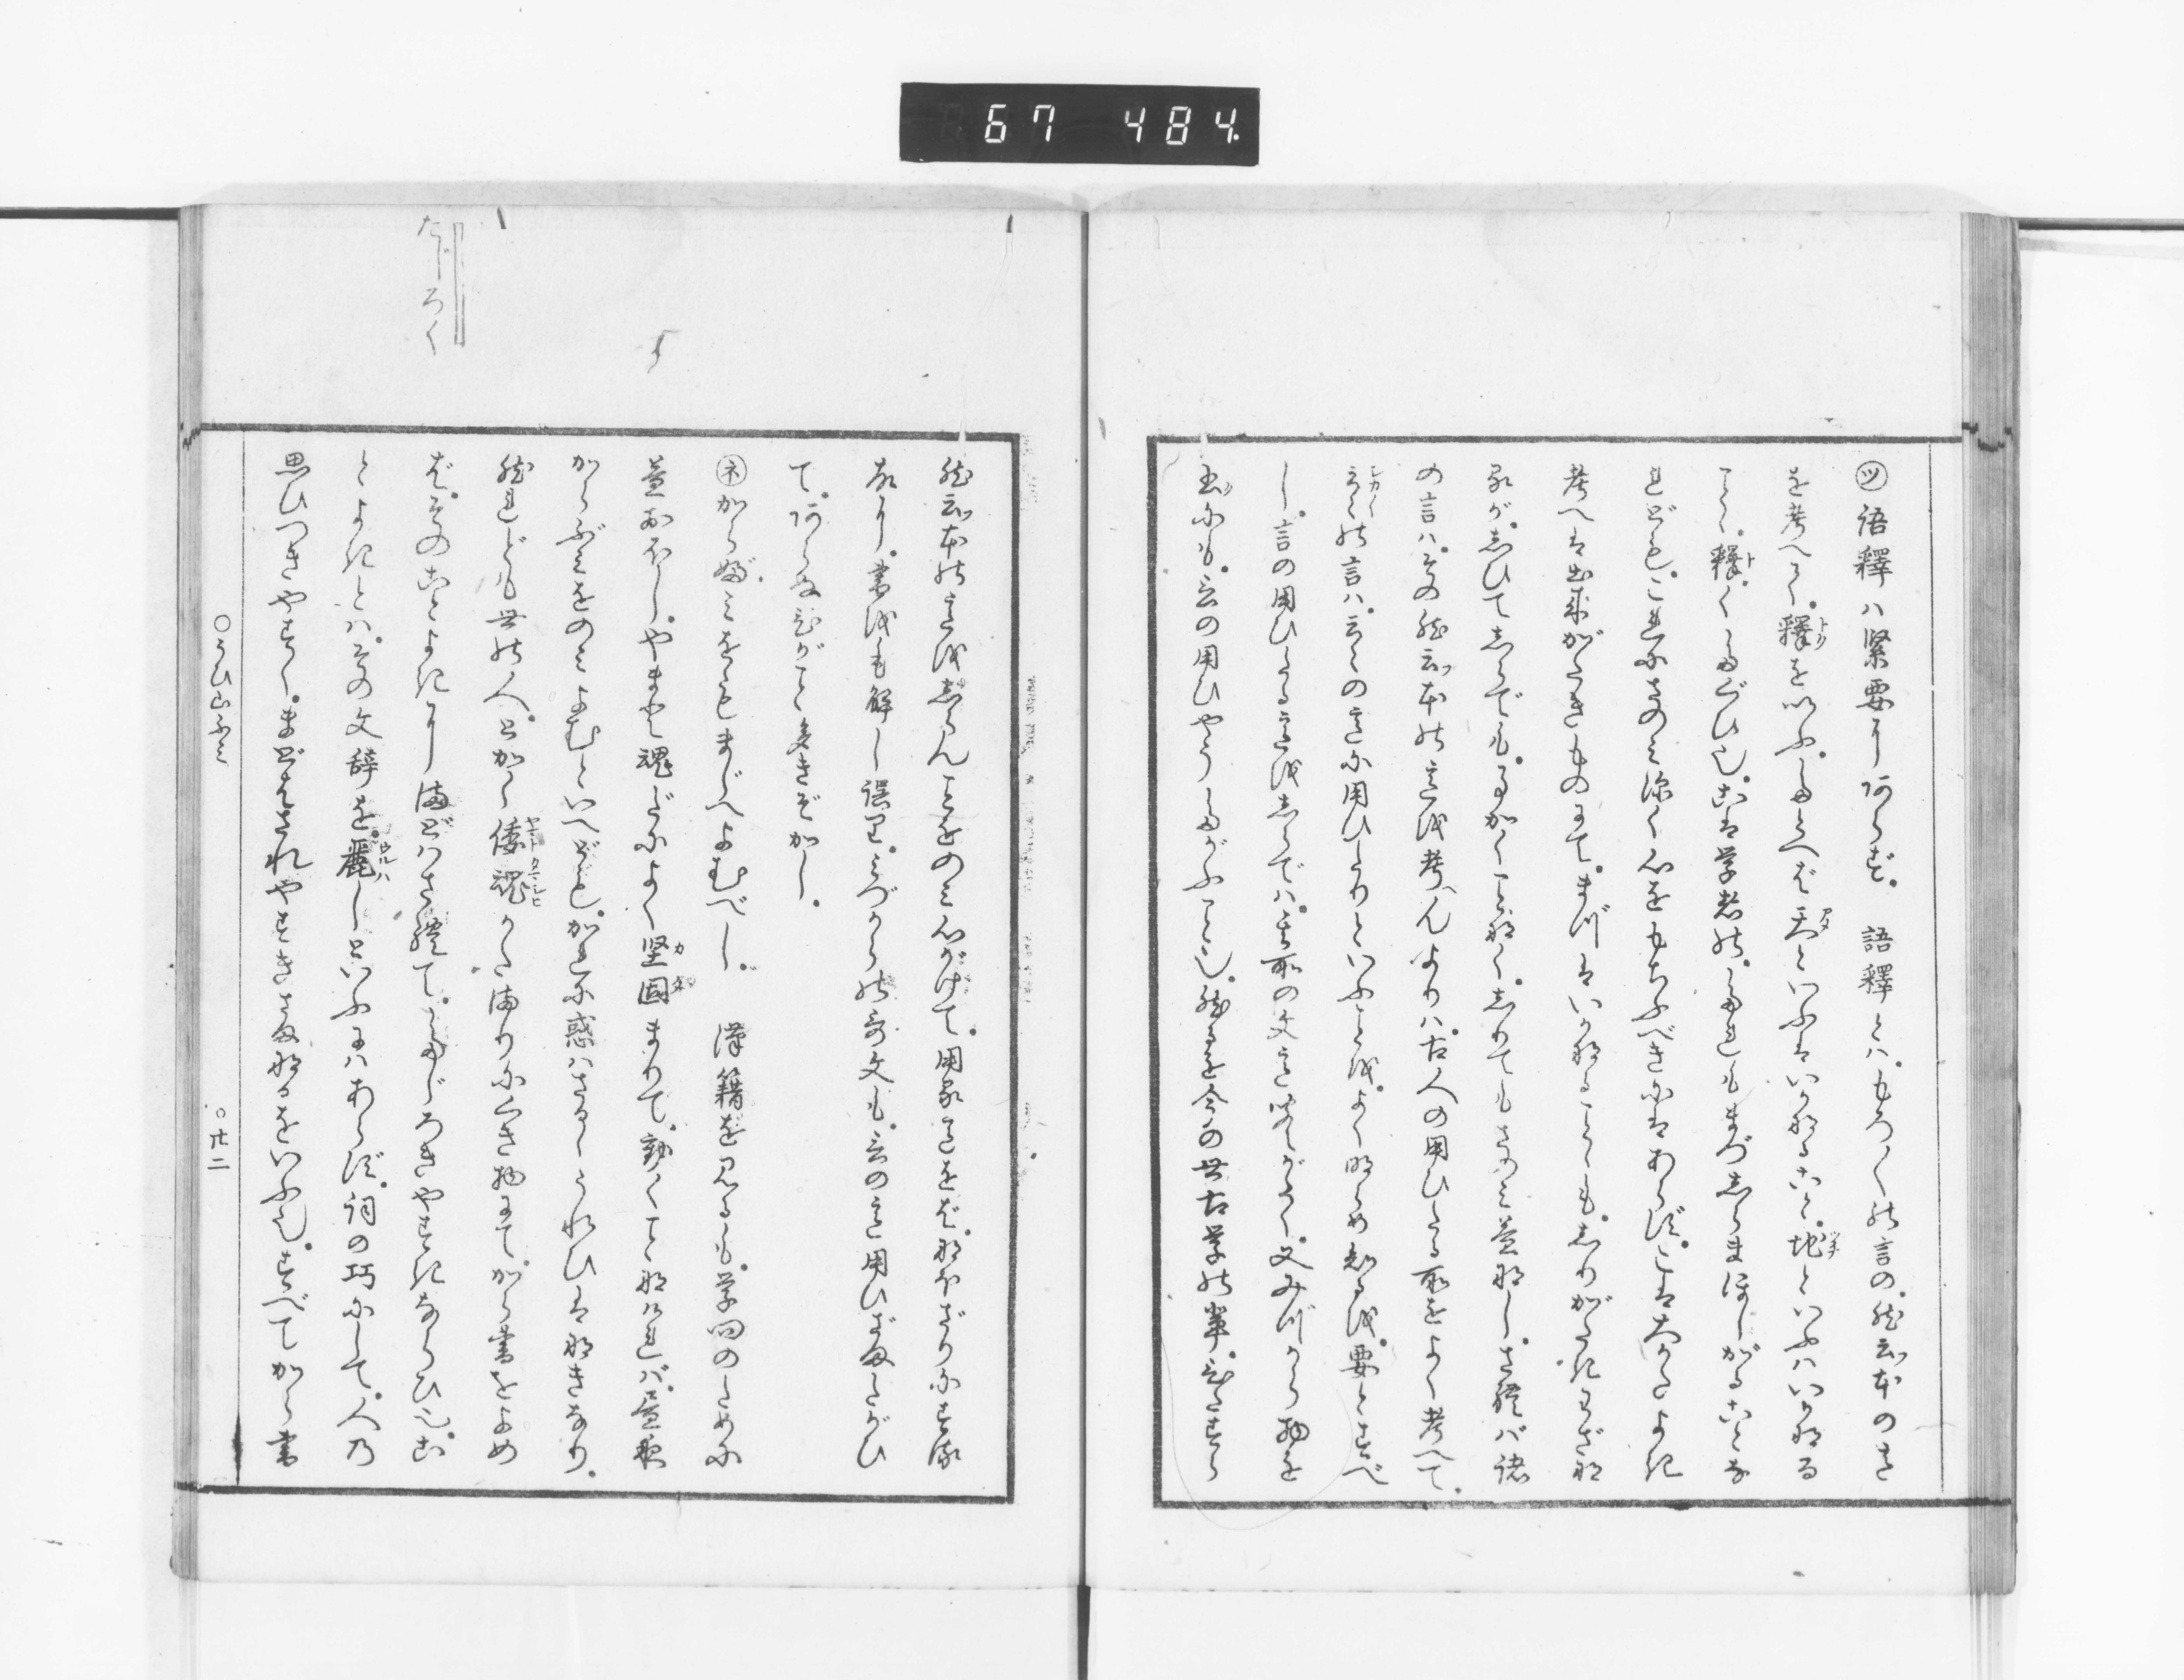 67 484
㋡語釋ハ緊要にあらず。 語釋とハ。もろ〳〵の言の。然云本のこゝろ
を考へて。釋を以ふ。たとへば天といふはいかなること。地といふハいかなる
こと。釋くたぐひ也。こは学者の。たれもまづしらまほしがることな
れども。これにさのみ深く心をもちふべきにはあらず。こは大かたよき
考へは出来がたきものにて。まづはいかなることゝも。しりがたきわざな
るが。しひてしらでも。事かくことなく。しりてもさのみ益なし。されバ諸
の言ハ。その然云本の意を考へんよりハ。古人の用ひたる所をよく考へて。
云々の言ハ。云々の意に用ひたりといふことを。よく明らめ知るを。要とすべ
し。言の用ひたる意をしらでハ。其所の文意聞えがたく。又みづから物を
書にも。言の用ひやうたがふこと也。然るを今の世古学の輩。ひたすら
然云本の意をしらんことをのみ心がけて。用る意をば。なほざりにする
故に。書をも解し誤り。みづからの哥文も。言の意用ひざまたがひ
て。あらぬひがこと多きぞかし。
㋧からぶみをもまじへよむべし。 漢籍を見るも。学問のために
益おほし。やまと魂だによく堅固まりて。動くことなけれバ。昼夜
からぶみをのみよむといへども。かれに惑ハさるゝうれひはなきなり。
然れども世の人。とかく倭魂かたまりにくき物にて。から書をよめ
ば。そのことよきにまどハされて。たぢろきやすきならひ也。こ
とよきとハ。その文辞を。麗しといふにハあらず。詞の巧にして。人の
思ひつきやすく。まどはされやすきさまなるをいふ也。すべてから書
○うひ山ふみ
○廿二
たぢろく